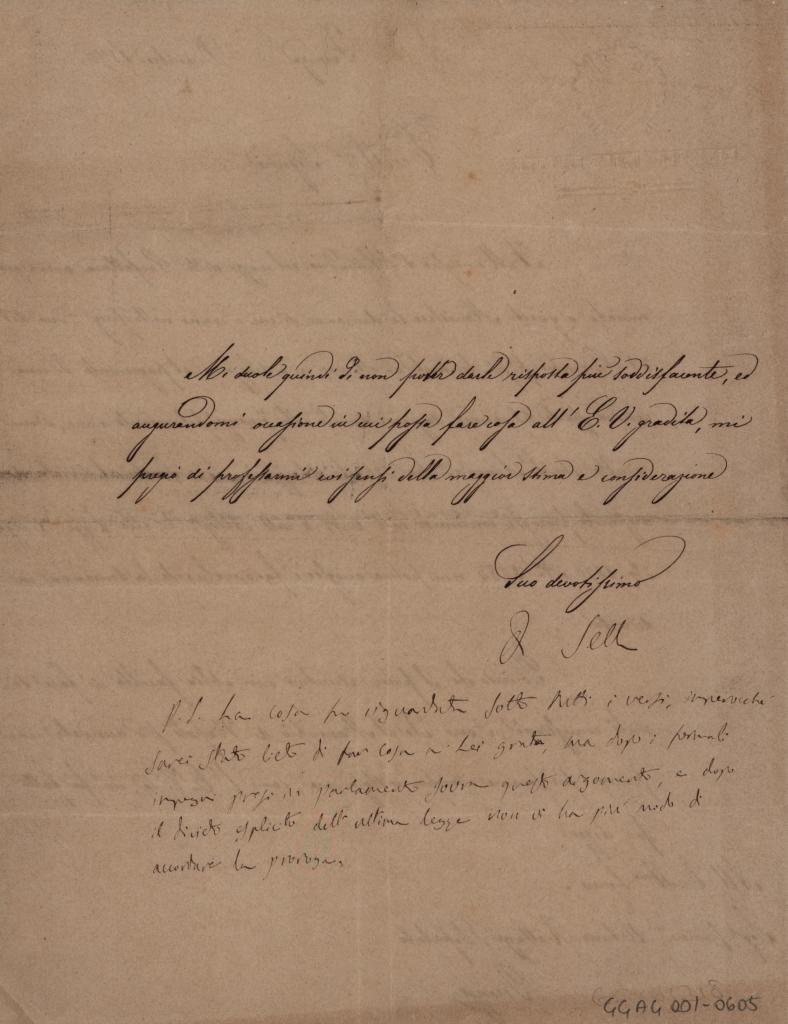 Mi duole quindi di non poter darle risposta più soddisfacente, ed
augurandomi occasione in cui possa fare cosa all' E. V. gradita, mi
pregio di professarmi coi sensi della maggior stima e considerazione
Suo devotissimo
Q Sella
P.S. La cosa fu riguardata sotto tutti i versi, imperocchè
sarei stato lieto di far cosa a Lei grata, ma dopo i formali
impegni presi in parlamento sovra questo argomento, e dopo
il divieto esplicito dell'ultima legge non vi ha più modo di
accordare la proroga.
GGAG 001-0605